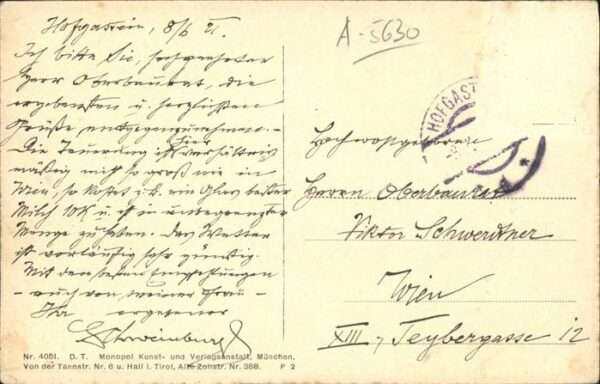 Hofgastein, 8/6 21.
Ich bitte Sie, hochgeehrter
Herr Oberbaurat, die
ergebensten u. herzlichsten
Grüße entgegenzunehmen. –
Die Teuerung ist hier verhältnis-
mäßig nicht so groß wie in
Wien, so kostet z. b. ein Glas bester
Milch 10 K u. ist in unbegrenzter
Menge zu haben. Das Wetter
ist vorläufig sehr günstig.
Mit den besten Empfehlungen
– auch von meiner Frau –
Ihr ergebener
A-5630
HOFGAST
Hochwohlgeboren
Herrn Oberbaurat
Viktor Schwerdtner
Wien
XIII., Teybergasse 12
Nr. 4051. D. T. Monopol Kunst- und Verlagsanstalt, München,
Von der Tannstr. Nr. 6 u. Hall i. Tirol, Alte Zollstr. Nr. 36B. P 2